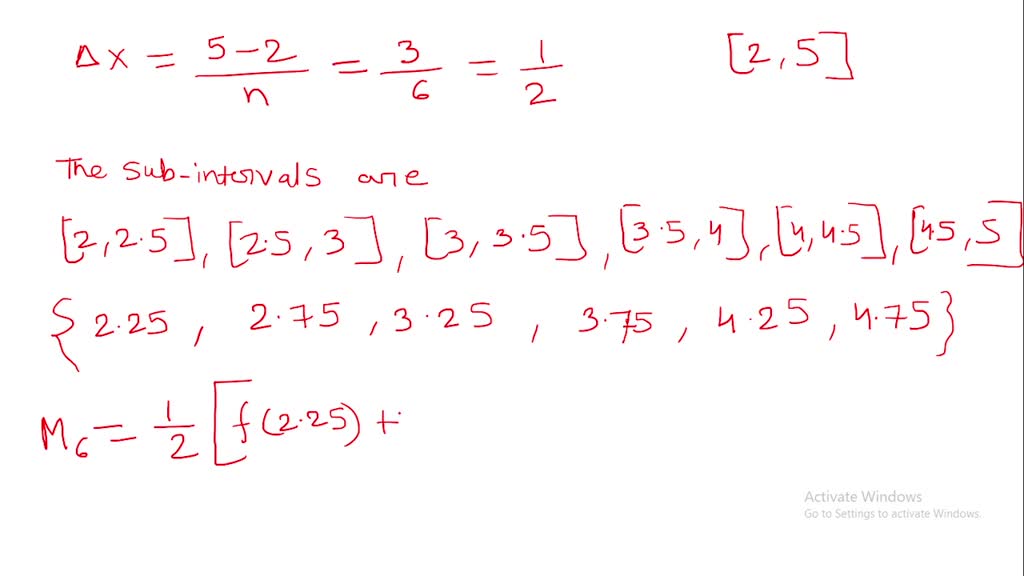 Δx = 5-2/n = 3/6 = 1/2 [2,5]
The sub-intervals are
[2,2.5], [2.5,3], [3,3.5], [3.5,4], [4,4.5], [4.5,5]
{2.25, 2.75, 3.25, 3.75, 4.25, 4.75}
M₆ = 1/2 [f(2.25) +
Activate Windows
Go to Settings to activate Windows.